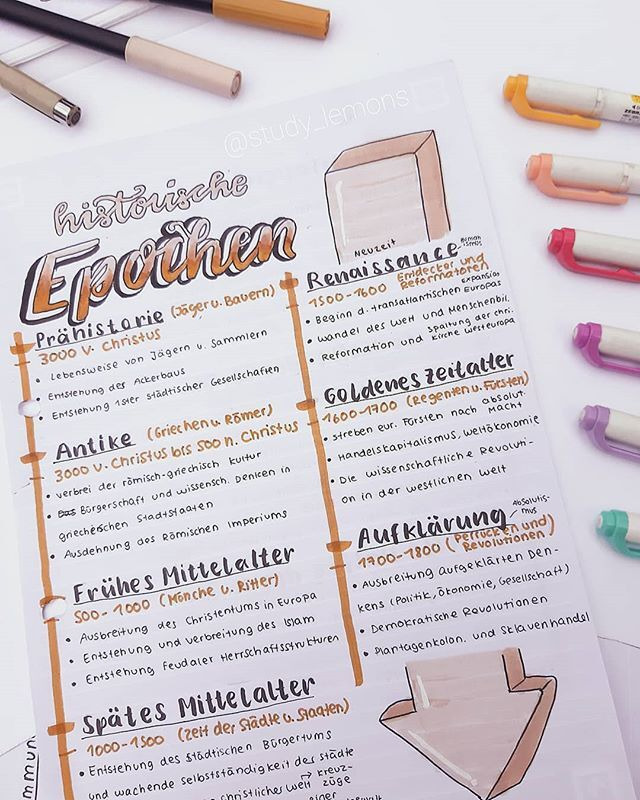 @study_lemons
historische
Epochen
Prähistorie (Jäger u. Bauern)
3000 v. Christus
• Lebensweise von Jägern u. Sammlern
• Entstehung des Ackerbaus
• Entstehung 1ster städtischer Gesellschaften
Antike (Griechen u. Römer)
3000 v. Christus bis 500 n. Christus
• verbrei der römisch-griechisch kultur
• Bürgerschaft und wissensch. Denken in
griechischen Stadtstaaten
• Ausdehnung des Römischen Imperiums
Frühes Mittelalter
500-1000 (Mönche u. Ritter)
• Ausbreitung des Christentums in Europa
• Entstehung und verbreitung des Islam
• Entstehung feudaler Herrschaftsstrukturen
Spätes Mittelalter
1000-1500 (Zeit der Städte u. Staaten)
• Entstehung des städtischen Bürgertums
und wachende selbstständigkeit des städte
christliches welt → kreuz-
züge
einer
Neuzeit
Renaissance
1500-1600 Entdecker und
Reformatoren
• Beginn d. transatlantischen Europas expansion
• Wandel des Welt und Menschenbil.
• Reformation und Spaltung der chri.
Kirche westeuropa
Goldenes Zeitalter
1600-1700 (Regenten u. Fürsten)
• streben eur. Fürsten nach absolut.
Macht
• Handelskapitalismus, weltökonomie
• Die wissenschaftliche Revoluti-
on in der westlichen welt
Aufklärung Absolutis-
mus
1700-1800 (Perrücken und)
Revolutionen
• Ausbreitung aufgeklärten Den-
kens (Politik, Ökonomie, Gesellschaft)
• Demokratische Revolutionen
• Plantagenkolon. und Sklavenhandel